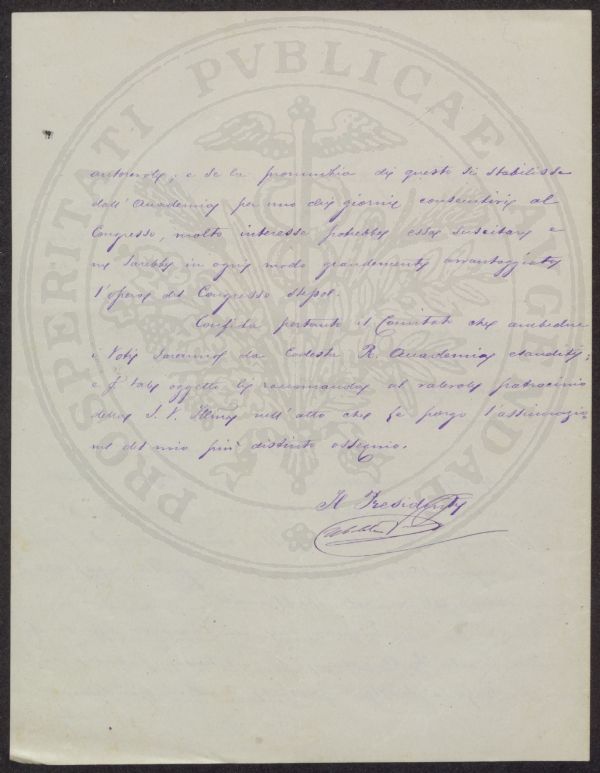 PROSPERITATI PVBLICAE AVGENDAE
autorevole; e se la pronunzia di questo si stabilisse
dall'Accademia per uno dei giorni consecutivi al
Congresso, molto interesse potrebbe essa suscitare e
ne sarebbe in ogni modo grandemente avvantaggiata
l'opera del Congresso stesso.
Confida pertanto il Comitato che ambedue
i Voti saranno da Codesta R. Accademia esauditi;
e tale oggetto la raccomanda al valevole patrocinio
della S. V. Illma nell'atto che Le porgo l'assicurazio-
ne del mio più distinto ossequio.
Il Presidente